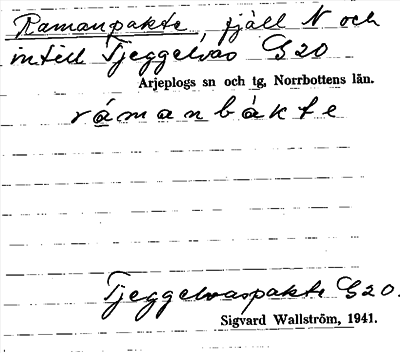 Ramanpakte, fjäll N och
intill Tjeggelvas G20
Arjeplogs sn och tg, Norrbottens län.
rámanbákte
Tjeggelvaspakte G20.
Sigvard Wallström, 1941.